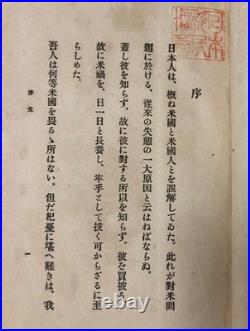 序
日本人は、概ね米國と米國人とを誤解してゐた。此れが對米問
題に於ける、從來の失態の一大原因と云はねばならぬ。
蓋し彼を知らず、故に彼に對する所以を知らず。彼を買被る、
故に米禍を、日一日と長養し、牢乎として拔く可からざるに至
らしめた。
吾人は何等米國を畏るゝ所はない。但だ杞憂に堪へ難きは、我
序文
一